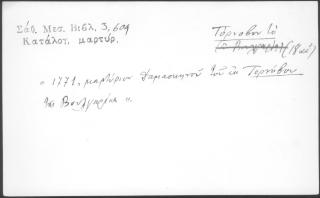 Σάθ. Μεσ. Βιβλ. 3, 609
Κατάλογ. μαρτύρ.
Τόρνοβον τὸ
(18 αἰ)
1771, μαρτύριον Δαμασκηνοῦ τοῦ ἐκ Τορνόβου
τῆς Βουλγαρίας